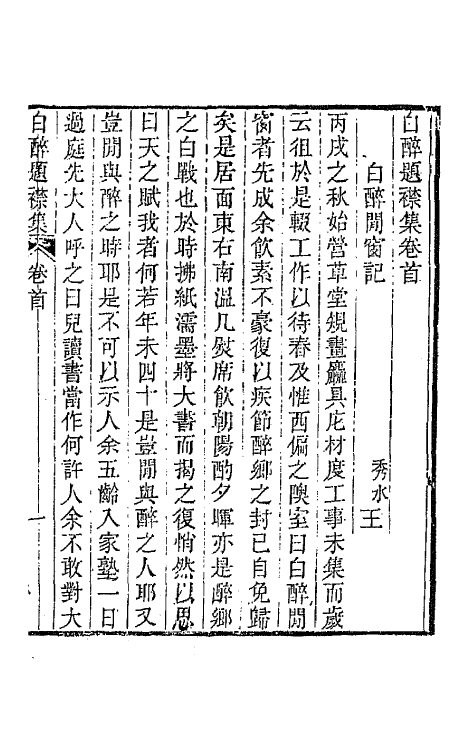 白醉題襟集卷首
白醉閒窗記
秀水王
丙戌之秋始營草堂規畫麤具庀材度工事未集而歲
云徂於是輟工作以待春及惟西偏之隩室曰白醉閒
窗者先成余飲素不豪復以疾節醉鄉之封已自免歸
矣是居面東右南溫几熨席飲朝陽酌夕暉亦是醉鄉
之白戰也於時拂紙濡墨將大書而揭之復悄然以思
曰天之賦我者何若年未四十是豈閒與醉之人耶又
豈閒與醉之時耶是不可以示人余五齡入家塾一日
過庭先大人呼之曰兒讀書當作何許人余不敢對大
白醉題襟集
卷首
一